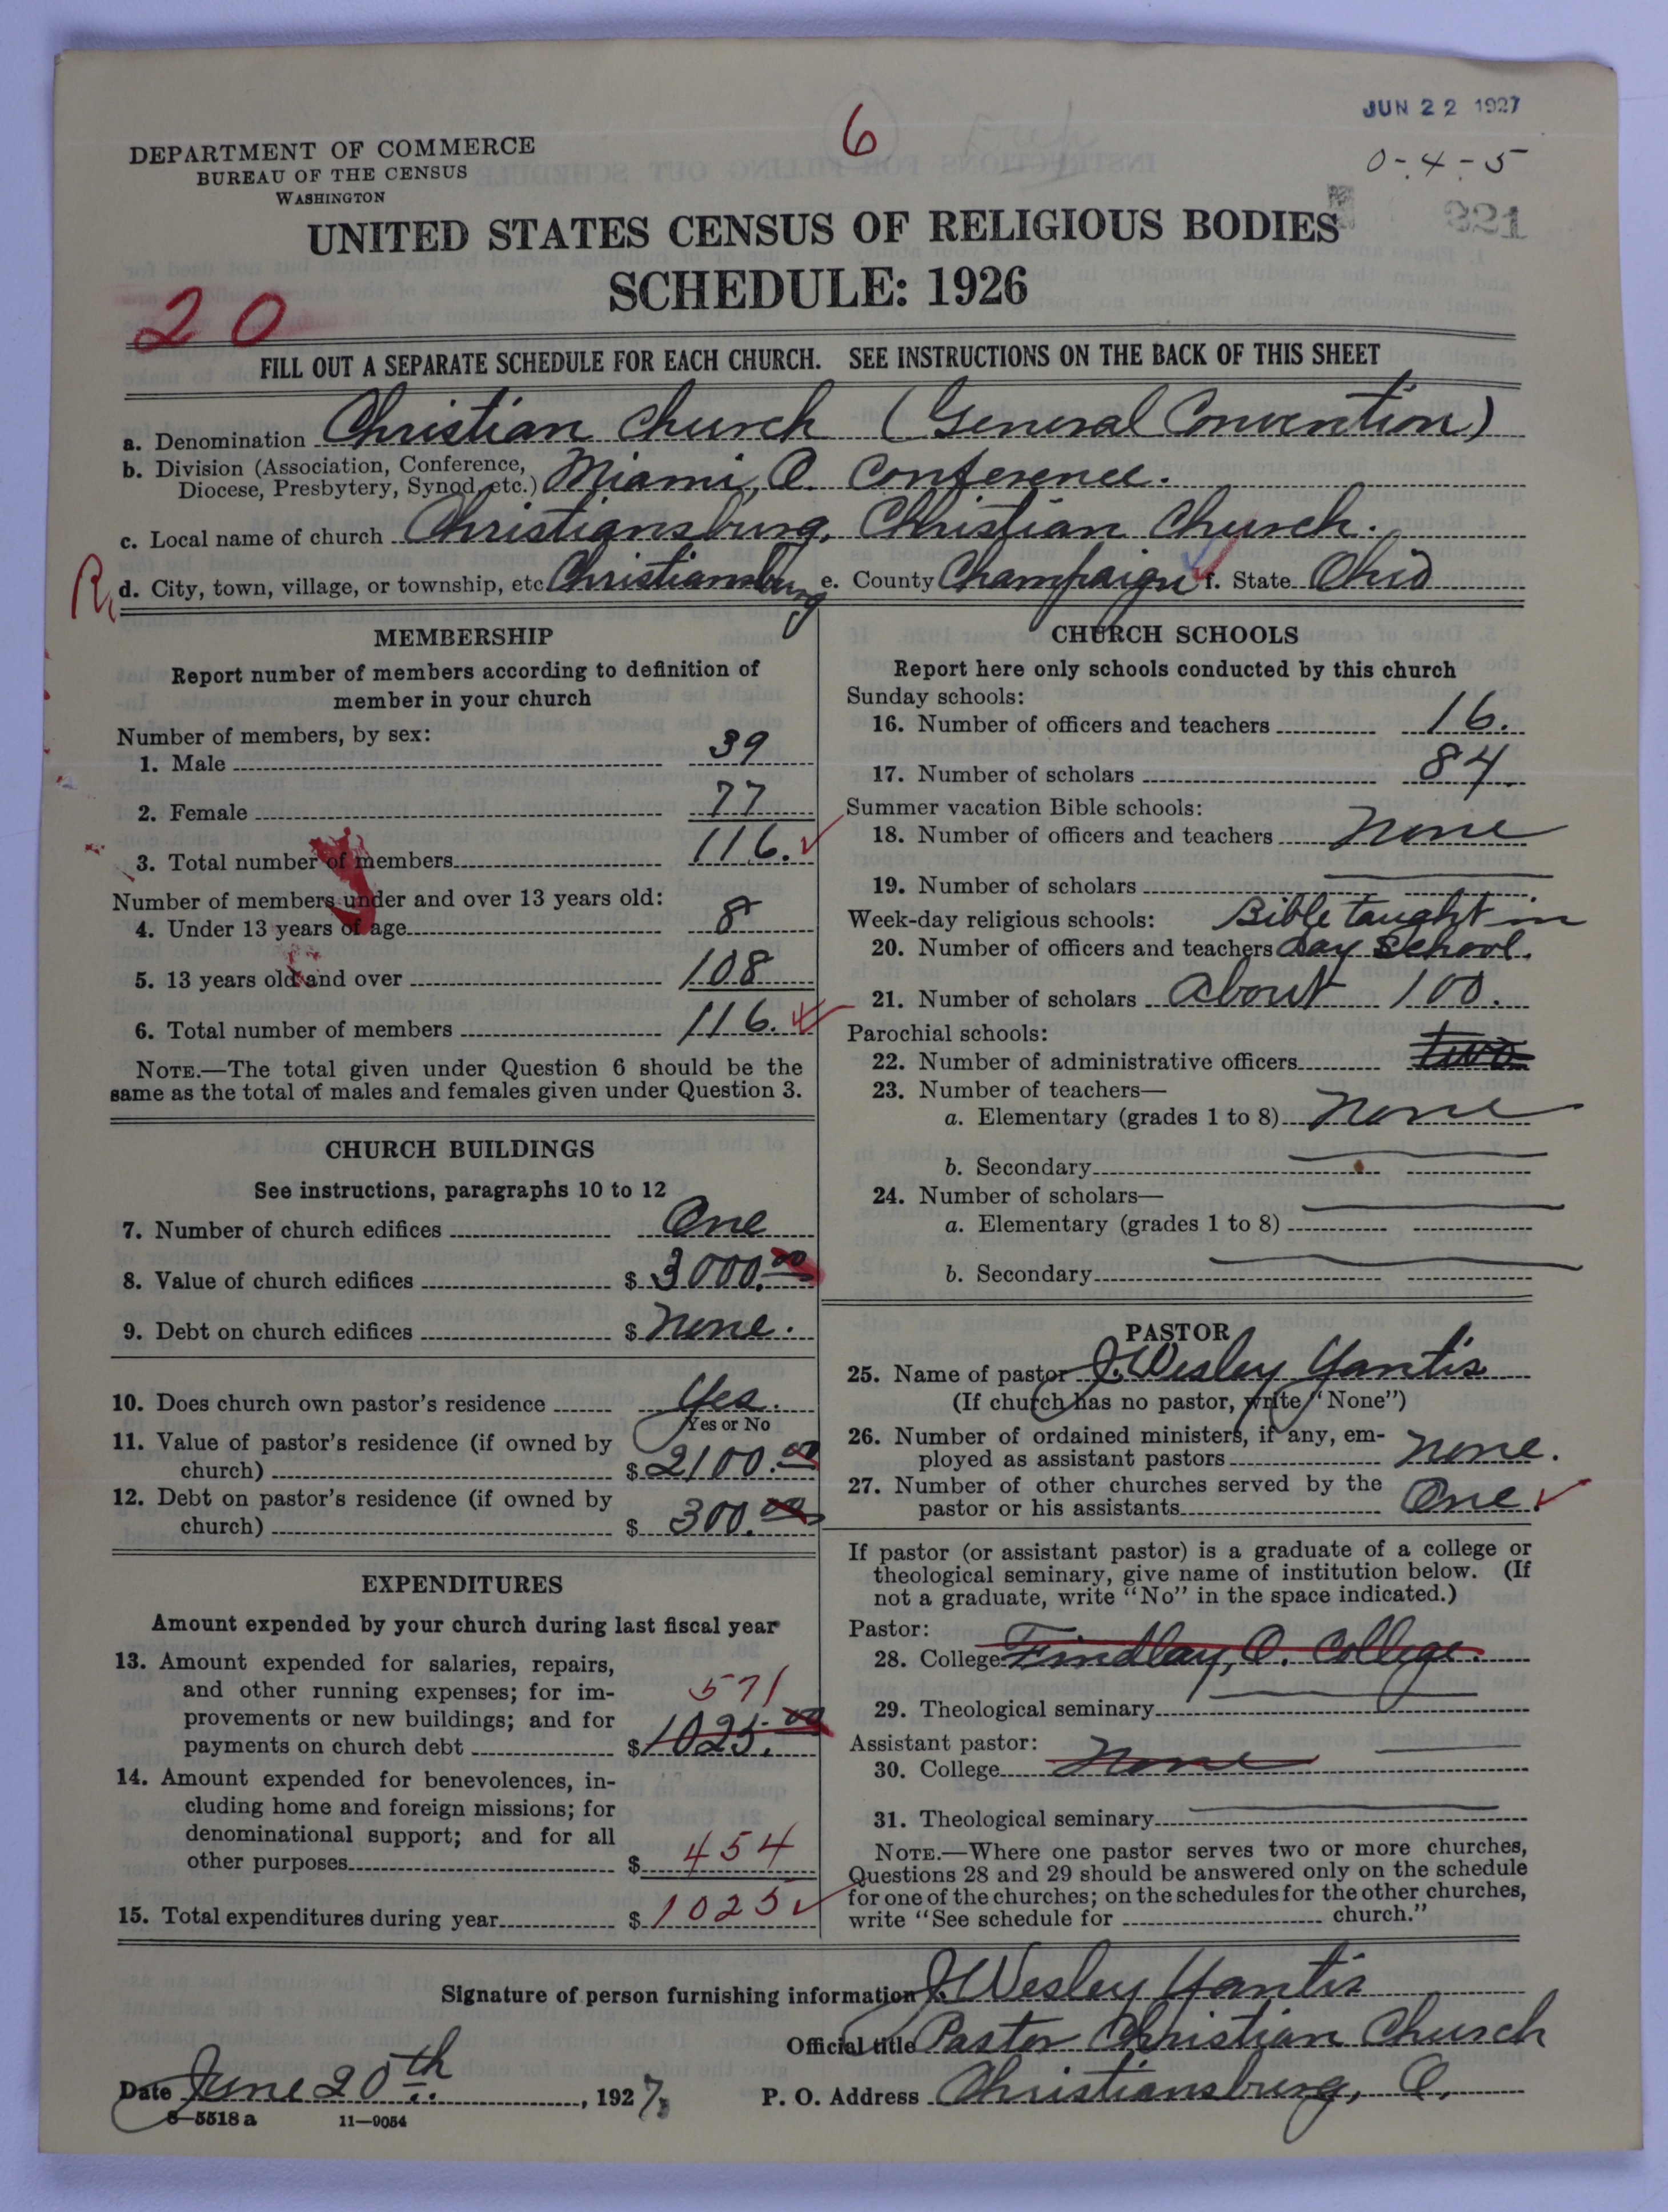 JUN 22 1927
6
DEPARTMENT OF COMMERCE
BUREAU OF THE CENSUS
WASHINGTON
0-4-5
321
UNITED STATES CENSUS OF RELIGIOUS BODIES
SCHEDULE: 1926
20
FILL OUT A SEPARATE SCHEDULE FOR EACH CHURCH. SEE INSTRUCTIONS ON THE BACK OF THIS SHEET
a. Denomination Christian Church (General Convention)
b. Division (Association, Conference,
Diocese, Presbytery, Synod, etc.) Miami, O. Conference.
c. Local name of church Christiansburg, Christian Church.
R d. City, town, village, or township, etc Christiansburg e. County Champaign f. State Ohio
MEMBERSHIP
Report number of members according to definition of
member in your church
Number of members, by sex:
1. Male 39
2. Female 77
3. Total number of members 116.
Number of members under and over 13 years old:
4. Under 13 years of age 8
5. 13 years old and over 108
6. Total number of members 116.
NOTE.—The total given under Question 6 should be the
same as the total of males and females given under Question 3.
CHURCH BUILDINGS
See instructions, paragraphs 10 to 12
7. Number of church edifices One
8. Value of church edifices $ 3000.00
9. Debt on church edifices $ None.
10. Does church own pastor's residence Yes.
Yes or No
11. Value of pastor's residence (if owned by
church) $ 2100.00
12. Debt on pastor's residence (if owned by
church) $ 300.00
EXPENDITURES
Amount expended by your church during last fiscal year
13. Amount expended for salaries, repairs,
and other running expenses; for im-
571
provements or new buildings; and for
payments on church debt $ 1025.00
14. Amount expended for benevolences, in-
cluding home and foreign missions; for
denominational support; and for all
other purposes $ 454
15. Total expenditures during year $ 1025
CHURCH SCHOOLS
Report here only schools conducted by this church
Sunday schools:
16. Number of officers and teachers 16.
17. Number of scholars 84
Summer vacation Bible schools:
18. Number of officers and teachers None
19. Number of scholars
Week-day religious schools: Bible taught in
20. Number of officers and teachers day school.
21. Number of scholars About 100.
Parochial schools:
22. Number of administrative officers two
23. Number of teachers—
a. Elementary (grades 1 to 8) None
b. Secondary
24. Number of scholars—
a. Elementary (grades 1 to 8)
b. Secondary
PASTOR
25. Name of pastor J. Wesley Yantis
(If church has no pastor, write "None")
26. Number of ordained ministers, if any, em-
ployed as assistant pastors None.
27. Number of other churches served by the
pastor or his assistants One.
If pastor (or assistant pastor) is a graduate of a college or
theological seminary, give name of institution below. (If
not a graduate, write "No" in the space indicated.)
Pastor:
28. College Findlay, O. College.
29. Theological seminary
Assistant pastor:
30. College None
31. Theological seminary
NOTE.—Where one pastor serves two or more churches,
Questions 28 and 29 should be answered only on the schedule
for one of the churches; on the schedules for the other churches,
write "See schedule for church."
Signature of person furnishing information J. Wesley Yantis
Official title Pastor Christian Church
Date June 20th. , 1927. P. O. Address Christiansburg, O.
8—5518 a 11—9054